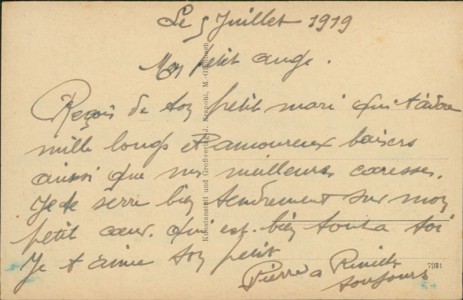 Le 5 Juillet 1919
Mon petit ange.
Reçois de ton petit mari qui t'adore
mille longs et amoureux baisers
ainsi que mes meilleurs caresses.
Je te serre bien tendrement sur mon
petit cœur. qui est bien tout a toi
Je t'aime ton petit
Pierre a
toujours
Kunstanstalt und Großvertrieb J.
7981